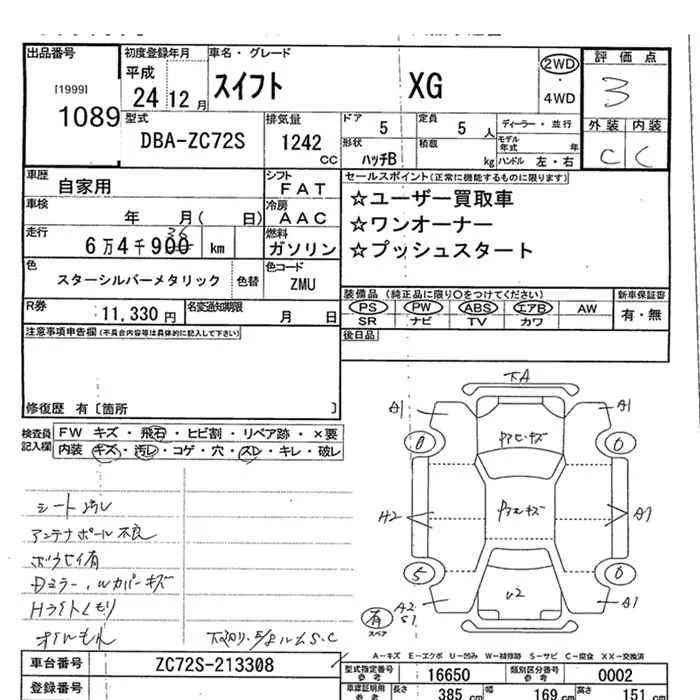 出品番号
[1999]
1089
初度登録年月
平成
24 12月
車名・グレード
スイフト XG
2WD
・
4WD
評価点
3
外装 内装
C C
型式
DBA-ZC72S
排気量
1242
CC
ドア
5
定員
5 人
ディーラー・並行
形状
ハッチB
積載
kg
モデル年式 年
ハンドル 左・右
車歴
自家用
シフト
FAT
車検
年 月( 日)
冷房
AAC
走行
6万4千900 km
36
燃料
ガソリン
色
スターシルバーメタリック
色替
色コード
ZMU
R券
11,330円
名変通知期限
月 日
セールスポイント(正常に機能するものに限ります)
☆ユーザー買取車
☆ワンオーナー
☆プッシュスタート
装備品(純正品に限り○をつけてください)
PS PW ABS エアB AW
SR ナビ TV カワ
新車保証書
有・無
後日品
注意事項申告欄(不具合内容等は具体的に記入して下さい)
修復歴 有〔箇所 〕
検査員記入欄
FW キズ・飛石・ヒビ割・リペア跡・×要
内装 キズ・汚レ・コゲ・穴・スレ・キレ・破レ
シート汚レ
アンテナポール不良
Dミラー,Wカバーキズ
Hライトくもり
オイルもれ
下A
A1
A1
A1
A1
A2
S1
U2
5
有
スペア
A-キズ E-エクボ U-凹み W-補修跡 S-サビ C-腐食 XX-交換済
車台番号
ZC72S-213308
登録番号
型式指定番号
参考
16650
類別区分番号
参考
0002
車庫証明用
参考
長さ
385 cm
幅
169 cm
高さ
151 cm